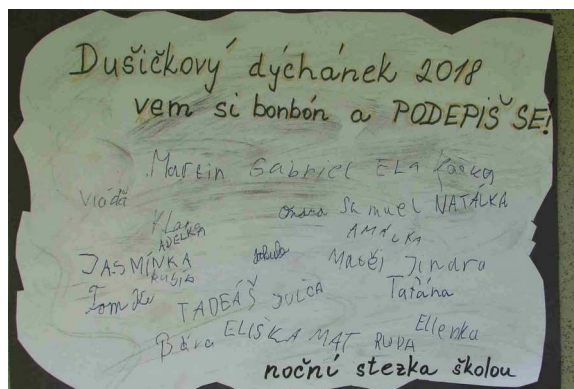 Dušičkový dýchánek 2018
vem si bonbón a PODEPIŠ SE!
Martin Gabriel ELA
Vláďa
Samuel NATÁLKA
Klára
ADÉLKA
AMÁLKA
JASMÍNKA
Matěj Jindra
Kubík
Tom
TADEÁŠ JULČA
Taťána
Bára ELIŠKA MAT RUDA Ellenka
noční stezka školou